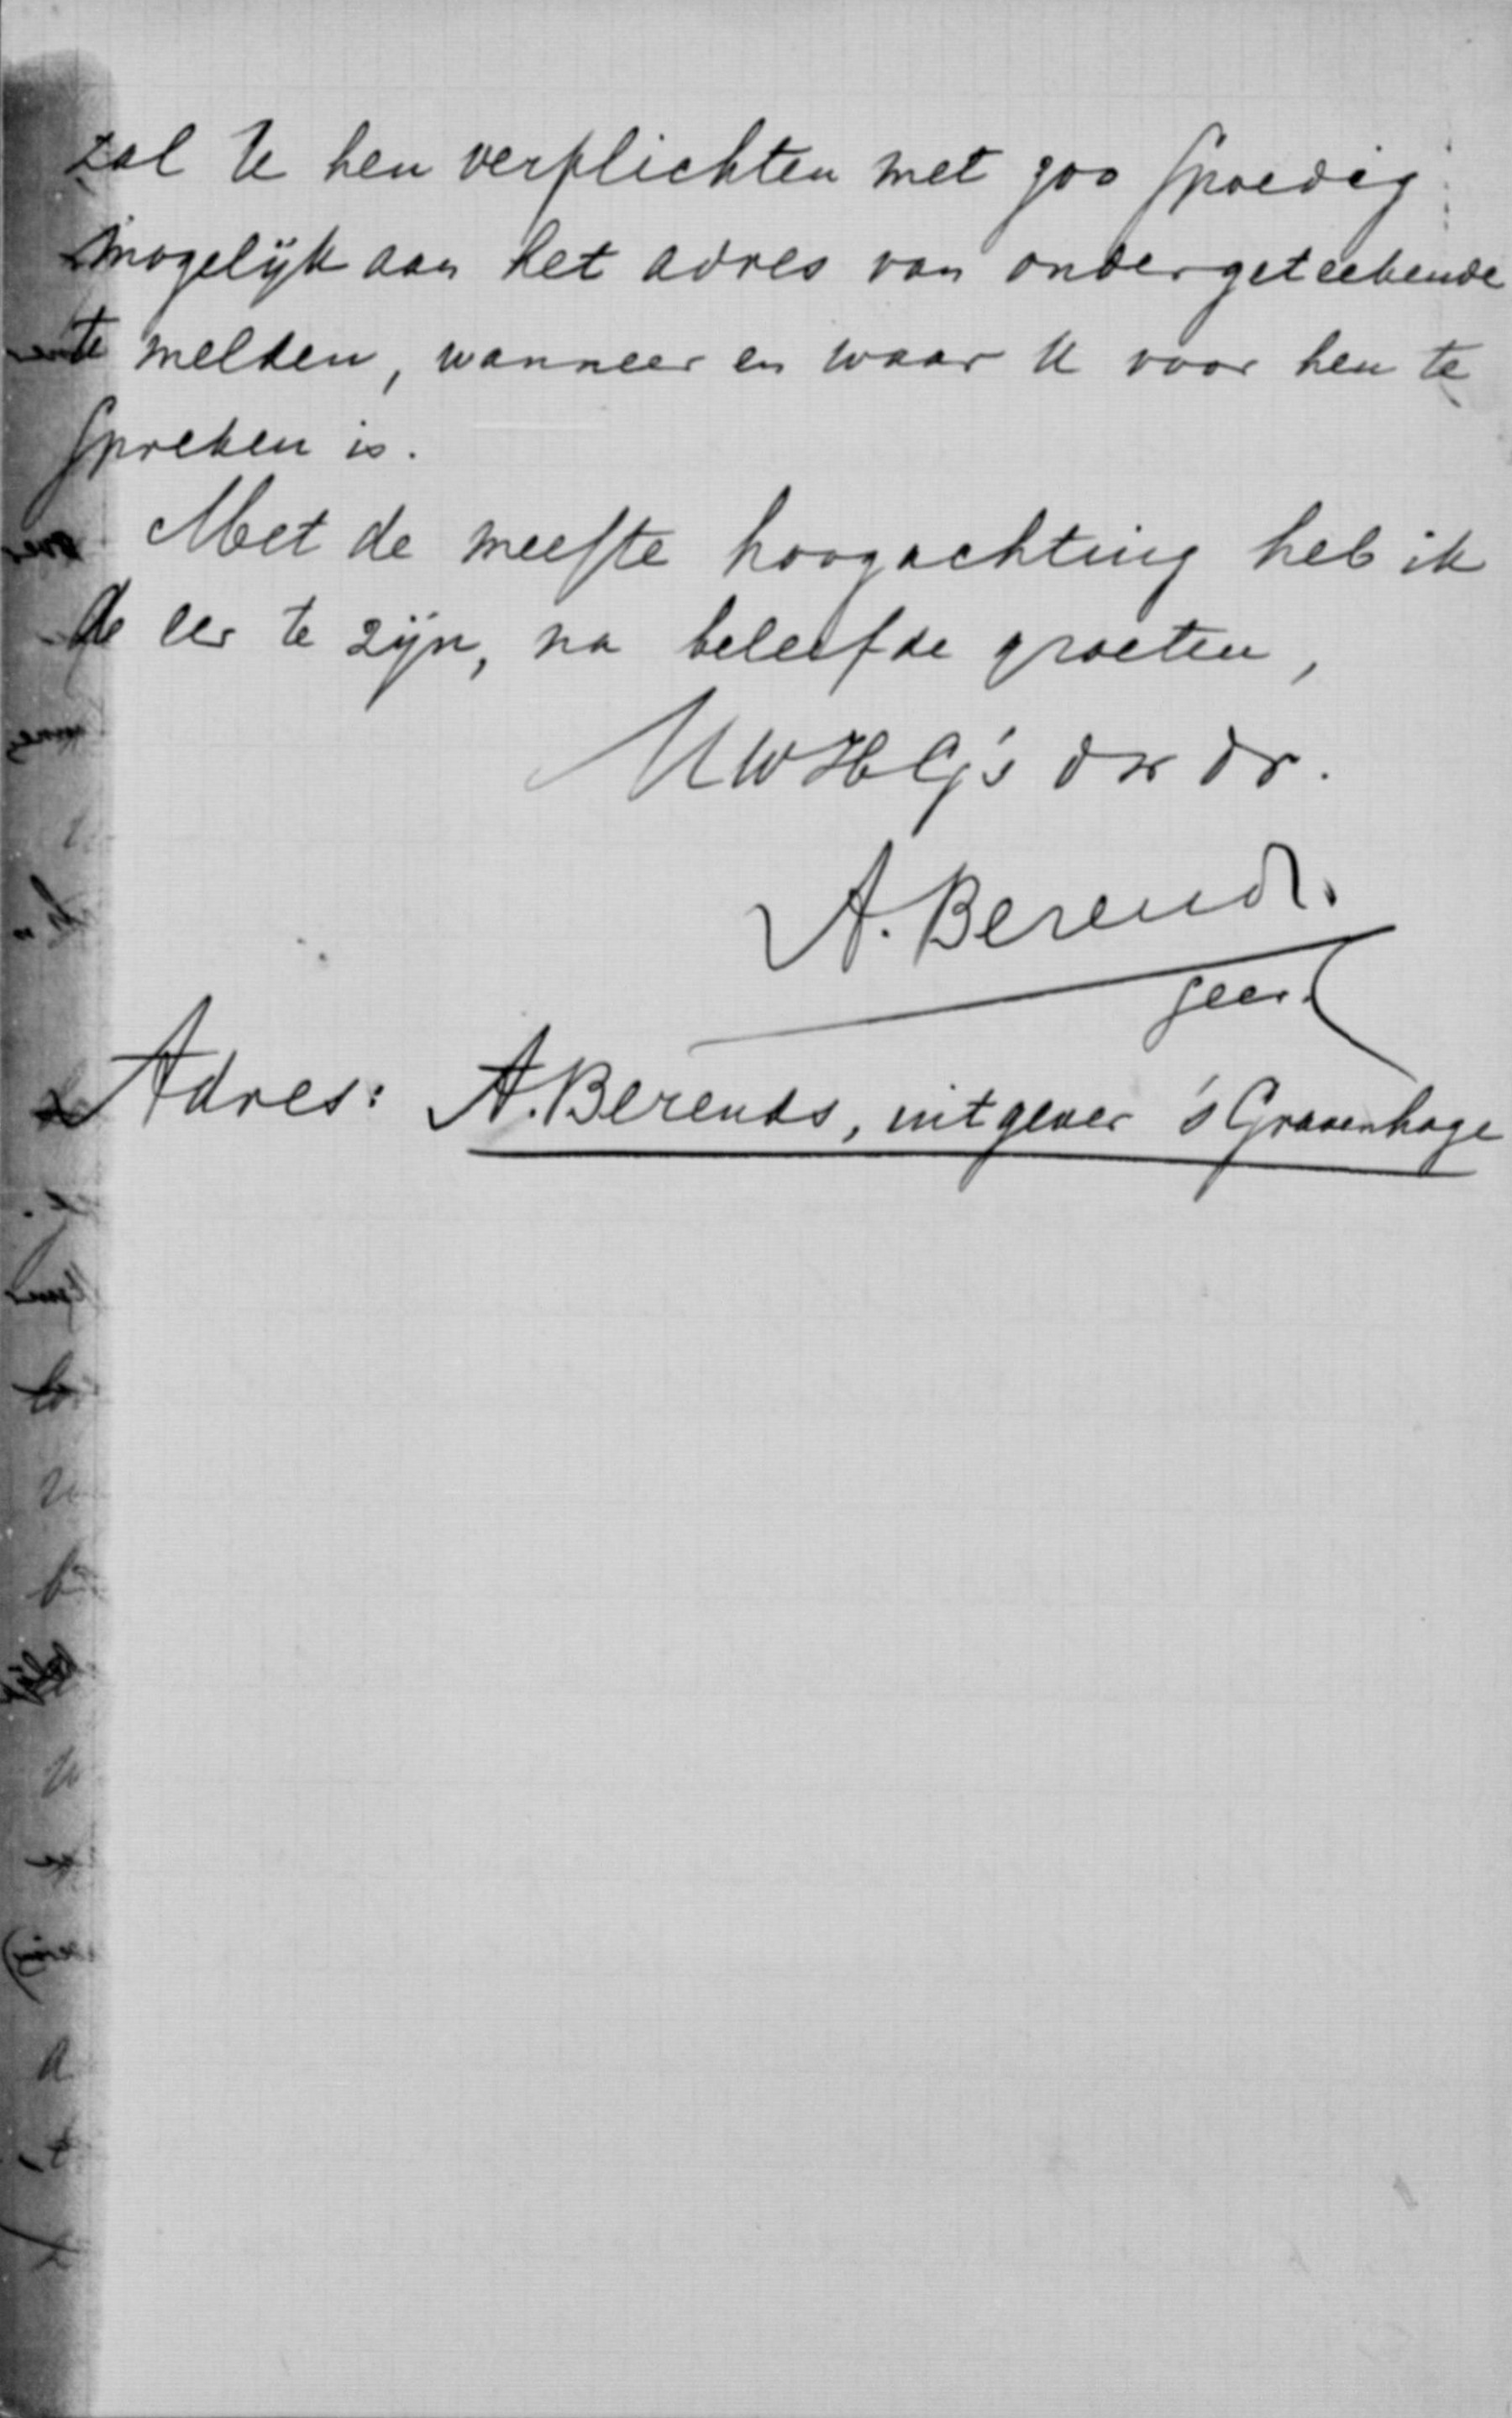 zal U hen verplichten met zoo spoedig
mogelijk aan het adres van ondergeteekende
te melden, wanneer en waar U voor hen te
spreken is.
Met de meeste hoogachting heb ik
de eer te zijn, na beleefde groeten,
UWHG's dw dr.
A. Berends.
secr.
Adres: A. Berends, uitgever 's Gravenhage